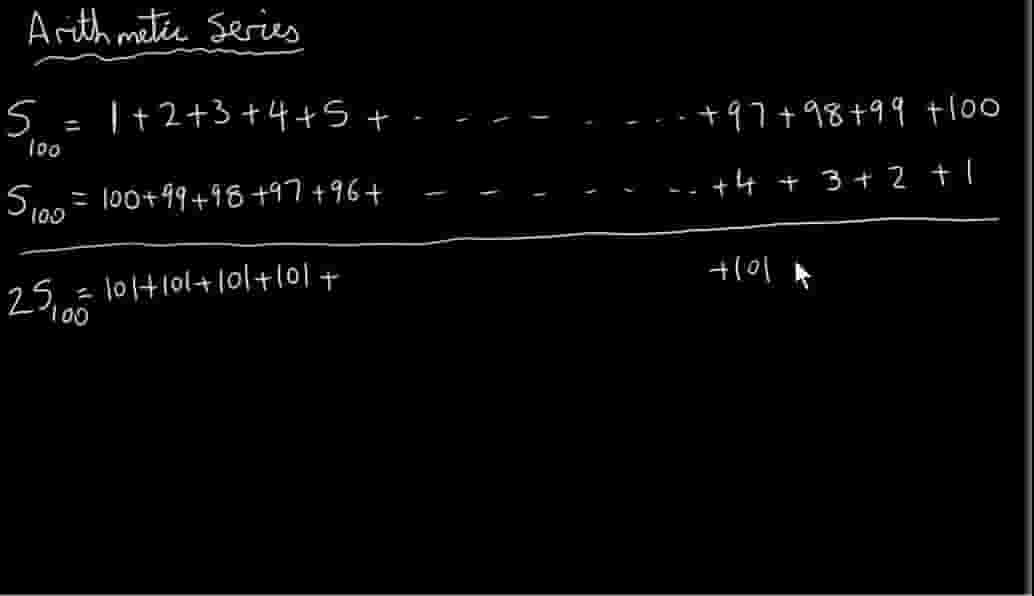 Arithmetic Series
S100 = 1+2+3+4+5+ · - - - - · - ··· +97+98+99+100
S100 = 100+99+98+97+96+ - - - - - - - ·· +4 + 3+2 +1
2S100 = 101+101+101+101+ +101